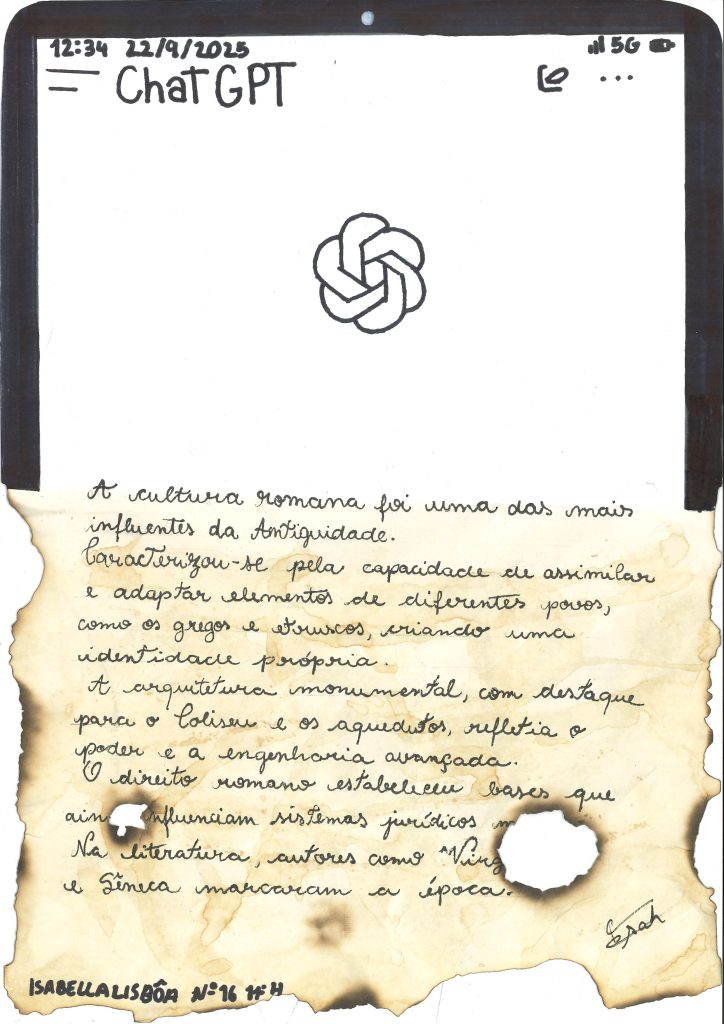 12:34 22/9/2025 5G
ChatGPT
A cultura romana foi uma das mais
influentes da Antiguidade.
Caracterizou-se pela capacidade de assimilar
e adaptar elementos de diferentes povos,
como os gregos e etruscos, criando uma
identidade própria.
A arquitetura monumental, com destaque
para o Coliseu e os aquedutos, refletia o
poder e a engenharia avançada.
O direito romano estabeleceu bases que
ain nfluenciam sistemas jurídicos m
Na literatura, autores como Virg
e Sêneca marcaram a época.
ISABELLA LISBÔA Nº16 1ºH